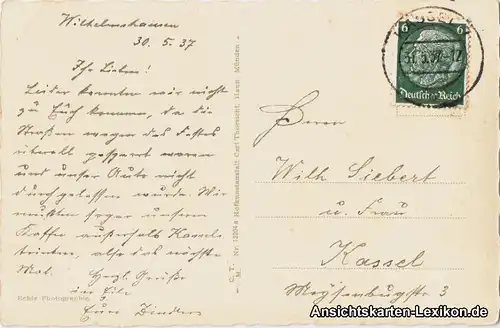 Wilhelmshausen
30. 5. 37
Ihr Lieben!
Leider konnten wir nicht
zu Euch kommen, da die
Straßen wegen des Festes
überall gesperrt waren
und unser Auto nicht
durchgelassen wurde. Wir
mußten sogar unseren
Kaffee außerhalb Kassel
trinken, also das nächste
Mal. Herzl. Grüße
in Eile
Eure
Echte Photographie
C. T. M. Nr. 12204 Hofkunstanstalt Carl Thoericht, Hann. Münden.
6 6
Deutsches Reich
31.5.37-12
Herrn
Wilh Siebert
u. Frau
Kassel
Meysenbugstr 3
Ansichtskarten-Lexikon.de